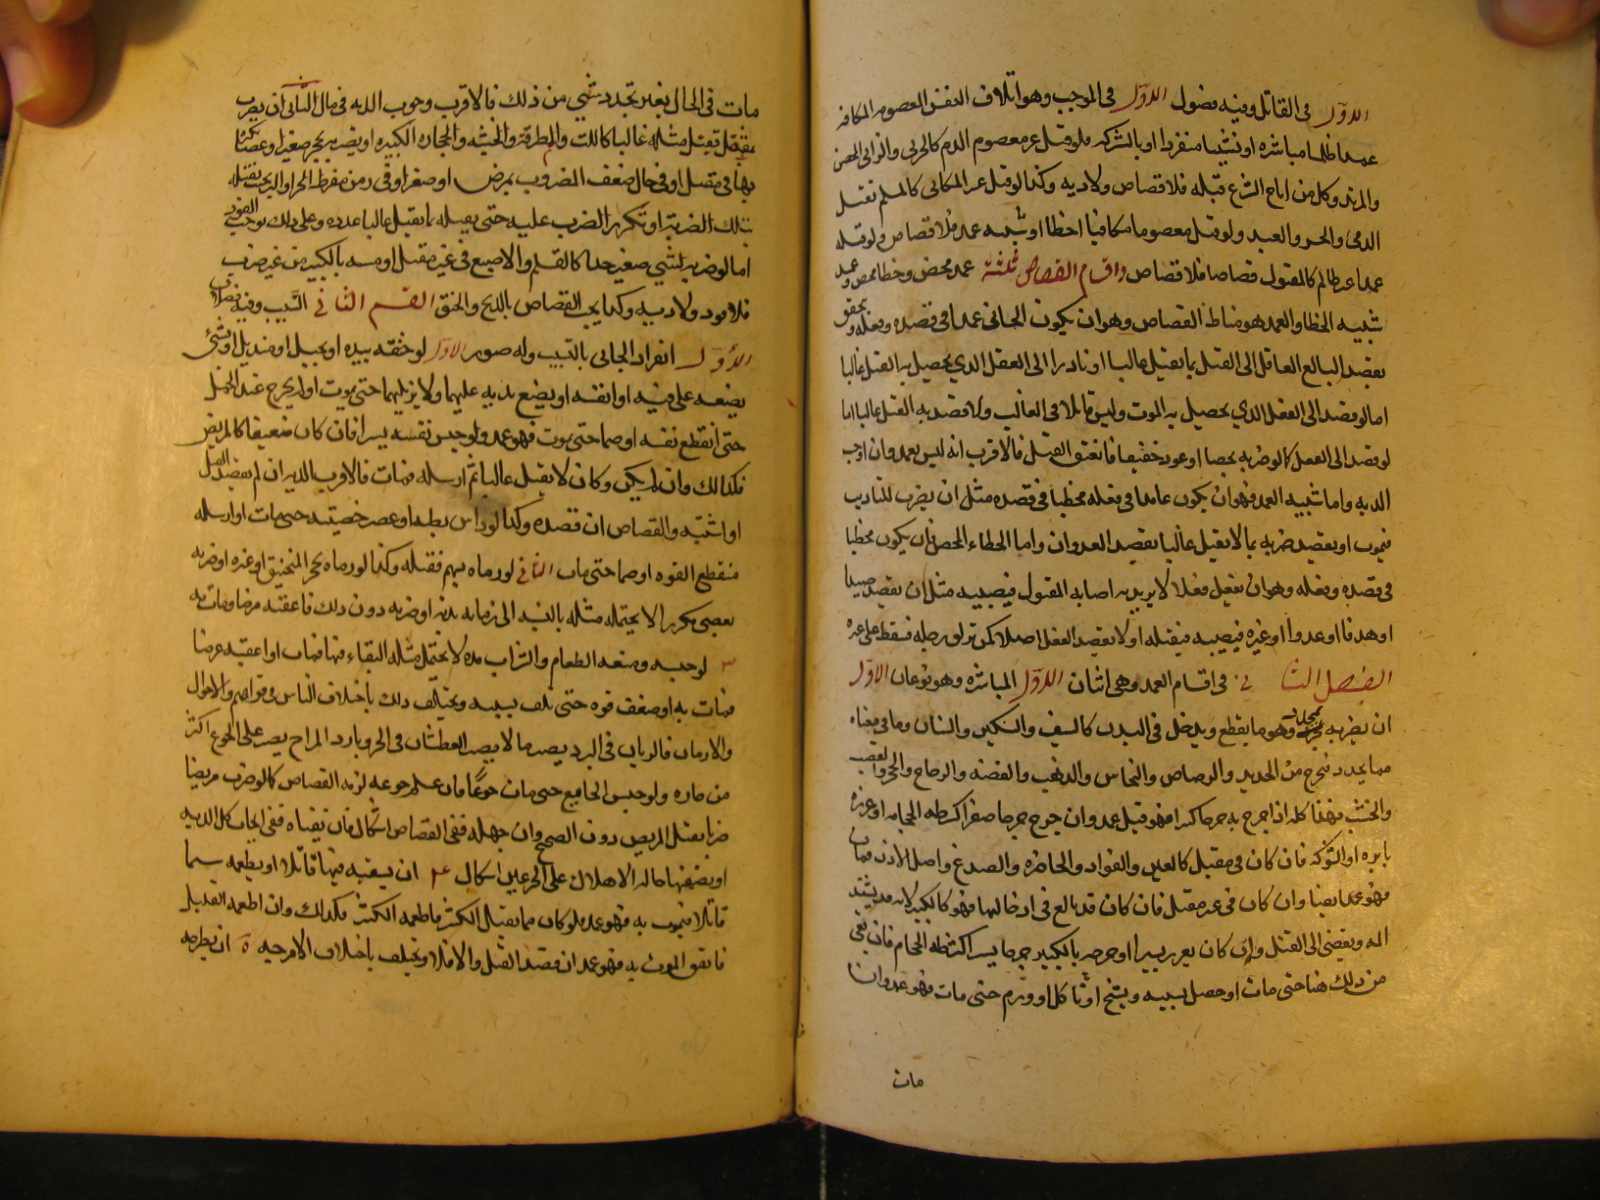 الاول في القاتل وفيه فصول الاول في الموجب وهو اتلاف النفس المعصومه المكافه
عمدا ظلما مباشره او تسبيبا منفردا او بالشركه فلو قتل غير معصوم الدم كالحربي والزاني المحصن
والمرتد وكل من اباح الشرع قتله فلا قصاص ولا ديه وكذا لو قتل غير المكافي كالمسلم يقتل
الذمي والحر والعبد ولو قتل معصوما مكافيا خطا او شبيه عمد فلا قصاص ولو قتله
عمدا غير ظالم كالمقتول قصاصا فلا قصاص واقسام القصاص ثلثة عمد محض وخطا محض وعمد
شبيه الخطا والعمد هو مناط القصاص وهو ان يكون الجاني عمدا في قصده وفعله ويحقق
بقصد البالغ العاقل الى القتل بما يقتل غالبا او نادرا الى الفعل الذي يحصل به القتل غالبا
اما لو قصد الى الفعل الذي يحصل به الموت وليس قاتلا في الغالب ولا قصد به القتل غالبا اما
لو قصد الى الفعل كما لو ضربه بحصا او عود خفيف فاتفق القتل فالاقرب انه ليس بعمد وان اوجب
الديه واما شبيه العمد فهو ان يكون عامدا في فعله مخطيا في قصده مثل ان يضرب للتاديب
فيموت او يقصد ضربه بما لا يقتل غالبا بقصد العدوان واما الخطاء المحض فان يكون مخطيا
في قصده وفعله وهو ان يفعل فعلا لا يريد به اصابه المقتول فيصيبه مثل ان يقصد صيدا
او هدفا او عدوا او غيره فيصيبه فيقتله او لا يقصد الفعل اصلا كمن تزلق رجله فسقط على غيره
الفصل الثاني في اقسام العمد وهي اثنان الاول المباشره وهو نوعان الاول
ان يضربه بمحدد وهو ما يقطع ويدخل في البدن كالسيف والسكين والسنان وما في معناه
مما يحدد فيجرح من الحديد والرصاص والنحاس والذهب والفضه والزجاج والحجر والقصب
والخشب فهذا كله اذا جرح به جرحا كبيرا فهو قتل عمد وان جرح جرحا صغيرا كشرطه الحجامه او غرزه
بابره او الشوكه فان كان في مقتل كالعين والفواد والخاصره والصدغ واصل الاذن فمات
فهو عمد ايضا وان كان في غير مقتل فان كان قد بالغ في ادخالها فهو كالكبير لانه قد يشتد
المه ويفضي الى القتل وان كان الغرز يسيرا او جرحه بالكبير جرحا يسيرا كشرطه الحجام فان بقي
من ذلك ضمنا حتى مات او حصل بسببه وتشنج او تاكل او ورم حتى مات فهو عمد وان
مات
مات في الحال بغير تجدد شيء من ذلك فالاقرب وجوب الديه في مال الثاني ان يضرب
بمثقل يقتل مثله غالبا كاللت والمطرقة والخشبه والحجاره الكبيره او يضربه بحجر صغير او عصا
بها في مقتل او في حال ضعف المضروب بمرض او صغر او في زمن مفرط الحر او البرد بحيث يقتله
بتلك الضربة او تكرر الضرب عليه حتى يقتله بما يقتل غالبا عدده وعلى ذلك يوجب القود
اما لو ضربه بشيء صغير جدا كالقلم والاصبع في غير مقتل او مسه بالكبير من غير ضرب
فلا قود ولا ديه وكذا يجب القصاص بالذبح والخنق القسم الثاني التسبيب وفيه
الاول انفراد الجاني بالتسبيب وله صور الاول لو خنقه بيده او بحبل او منديل او شيء
يضعه على فيه او انفه او يضع يديه عليهما ولا يزيلهما حتى يموت او لم يخرج عند الحبل
حتى انقطع نفسه او ضمنا حتى يموت فهو عمد ولو حبس نفسه يسيرا فان كان ضعيفا كالمريض
فكذلك وان لم يكن وكان لا يقتل غالبا ثم ارسله فمات فالاقرب الديه ان لم يقصد القتل
او اشتبه والقصاص ان قصده وكذا لو داس بطنه او عصر خصيتيه حتى مات او ارسله
منقطع القوه او ضمنا حتى مات الثاني لو رماه بسهم فقتله وكذا لو رماه بحجر المنجنيق او غيره او ضربه
بعصى مكررا لا يحتمله مثله بالنسبه الى زمانه وبدنه او ضربه دون ذلك فاعقبه مرضا ومات به
٣ لو حبسه ومنعه الطعام والشراب مده لا يحتمل مثله البقاء فيها فمات او اعقبه مرضا
فمات به او ضعف قوه حتى تلف بسببه ويختلف ذلك باختلاف الناس وقواهم والاحوال
والازمان فالريان في البرد يصبر ما لا يصبر العطشان في الحر وبارد المزاج يصبر على الجوع اكثر
من حاره ولو حبس الجايع حتى مات جوعا فان علم جوعه لزمه القصاص كما لو ضرب مريضا
ضربا يقتل المريض دون الصحيح وان جهله ففي القصاص اشكال فان نفيناه ففي ايجاب كل الديه
او نصفها احاله للاهلاك على الجوعين اشكال ٤ ان يسقيه فيها قاتلا او يطعمه سما
قاتلا فيموت به فهو عمد فلو كان مما يقتل الكثير فاطعمه الكثير فكذلك وان اطعمه القليل
فاتفق الموت به فهو عمد ان قصد القتل والا فلا ويختلف باختلاف الامزجه ٥ ان يطرحه